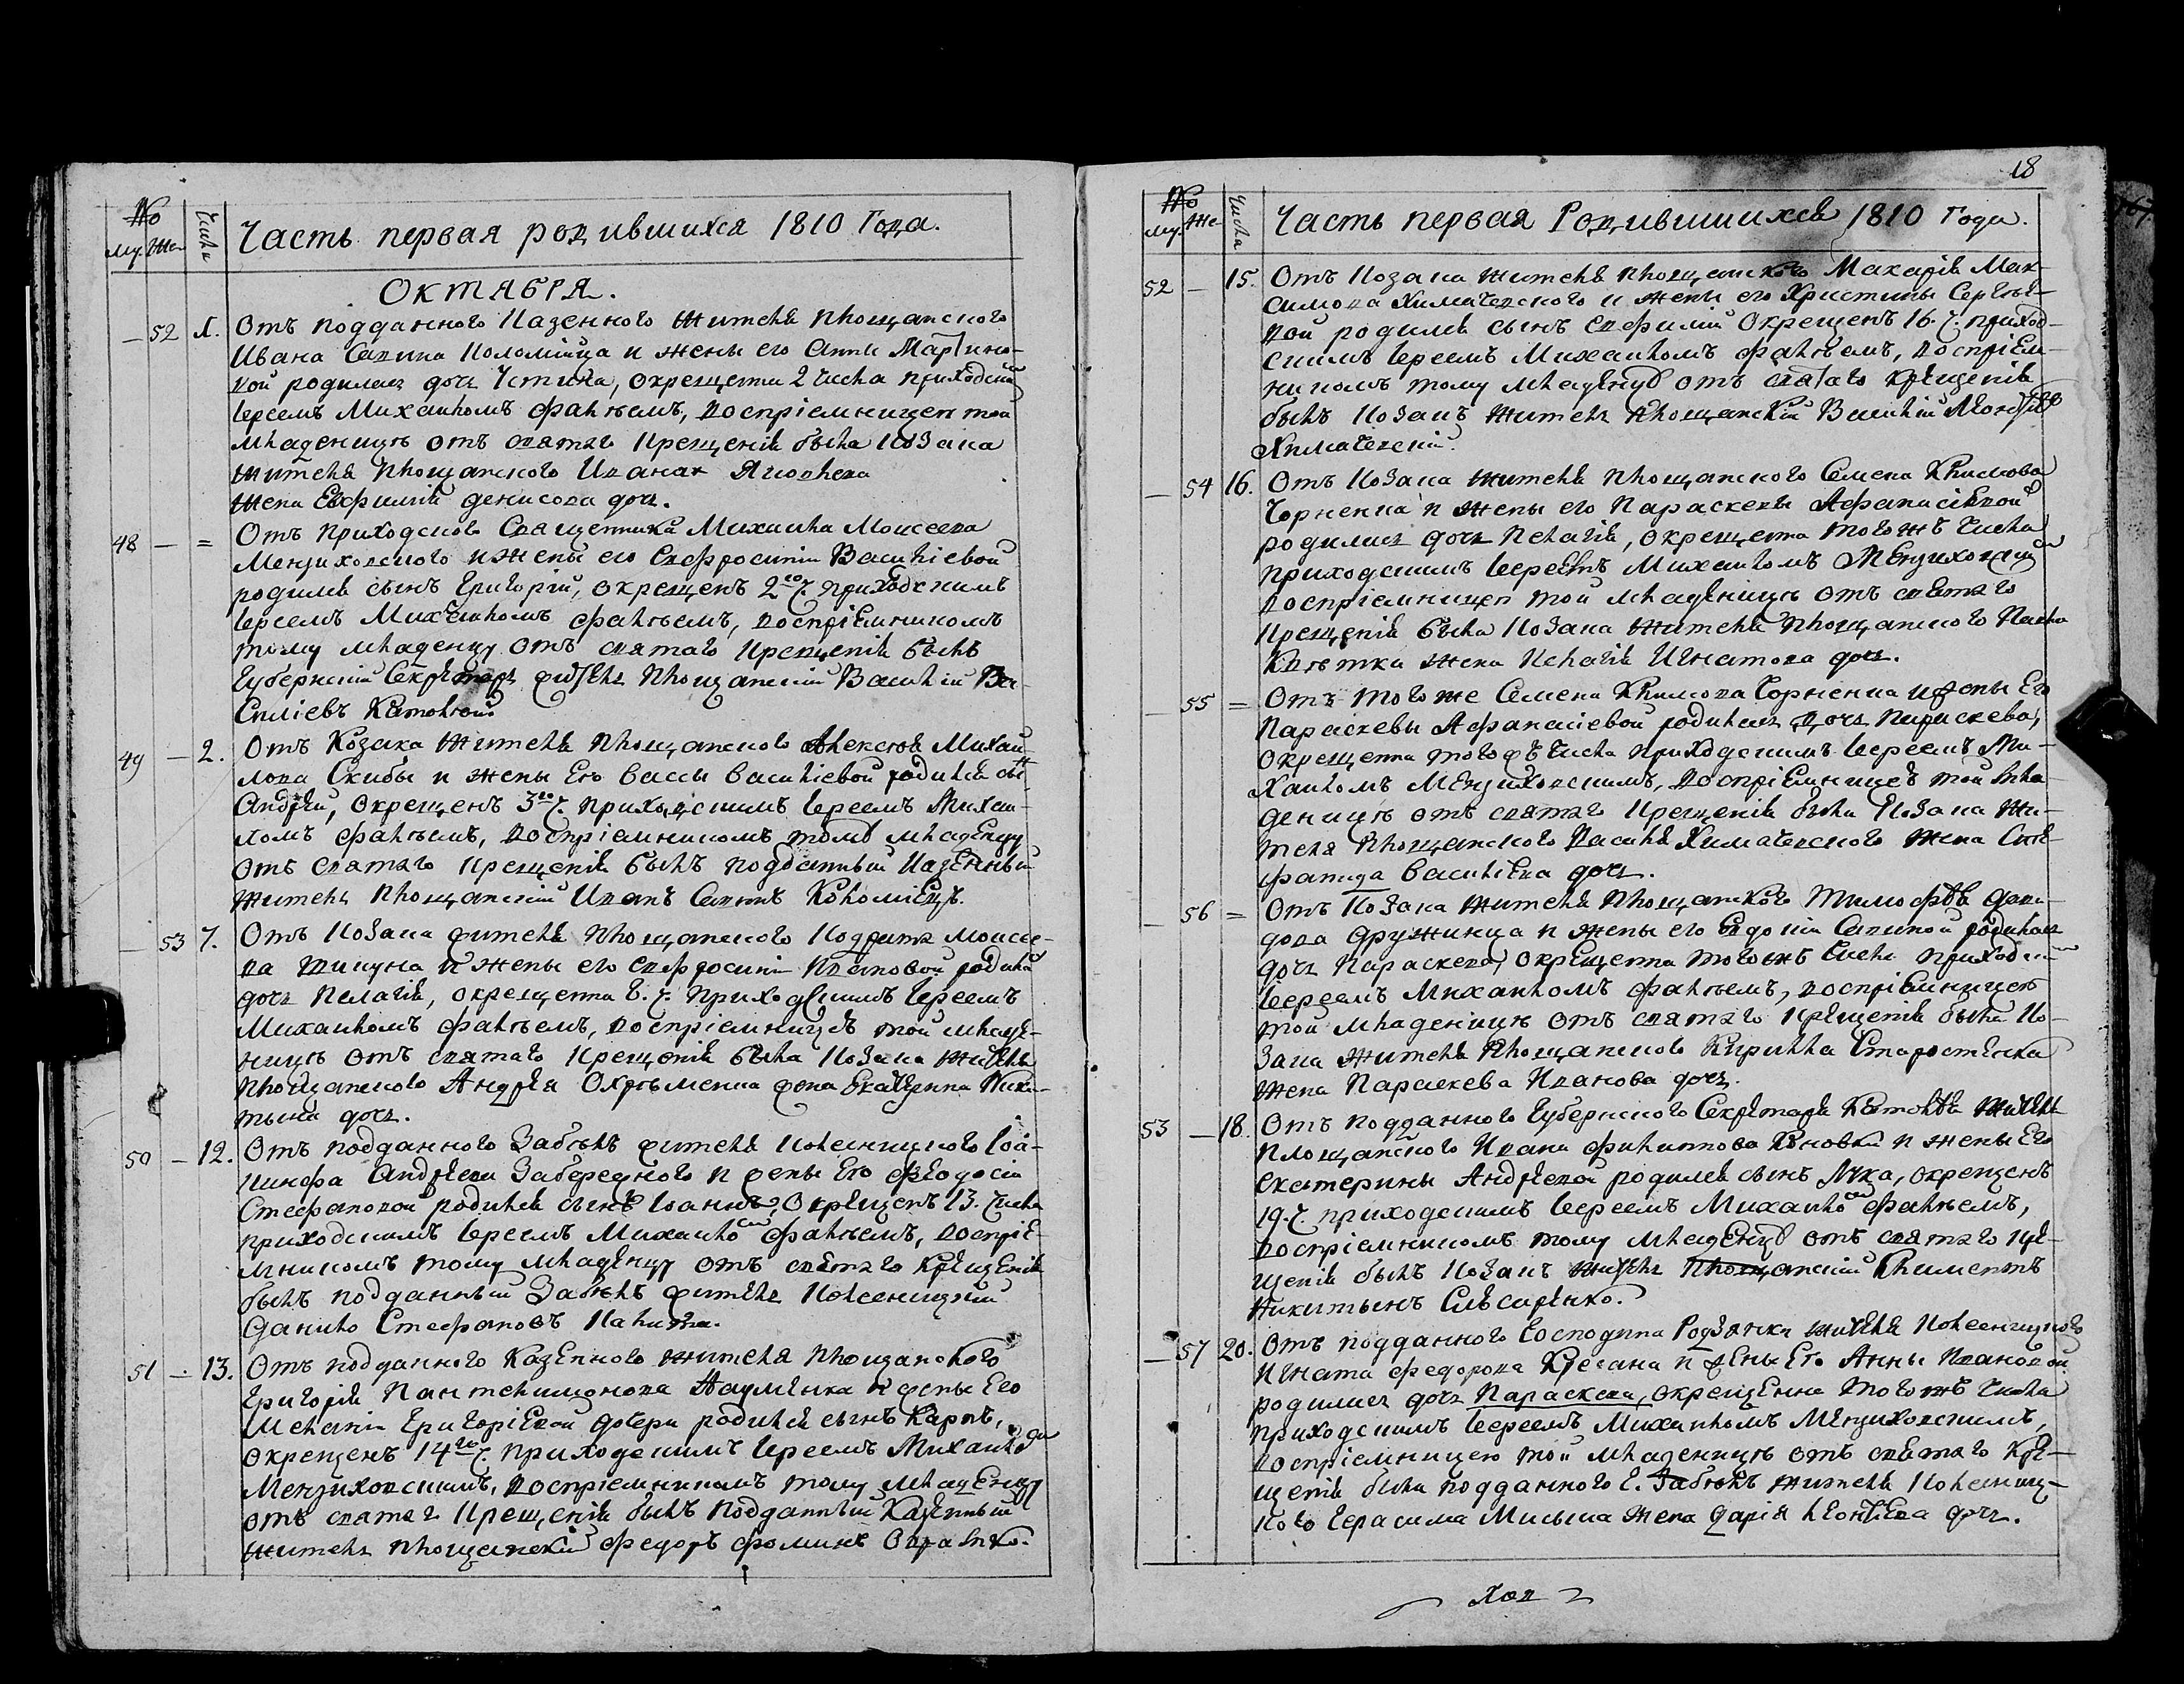 №
му. Же
Числа
Часть первая родившихся 1810 Года.
ОКТЯБРЯ.
— 52 1. Отъ подданного Казенного жителя Площанского
Ивана Савина Коломійца и жены его Анны Мартино-
вой родилась дочь Устина, окрещенна 2 числа приходскім
Іереемъ Михаиломъ Фалѣемъ, воспріемницею той
младеницѣ отъ святаго крещенія была козака
жителя Площанского Ивана
жена Евфимія Денисова дочь.
48 — = Отъ приходского Священника Михаила Моисеева
Мензиховского и жены его Евфросиніи Василіевой
родился сынъ Григорій, окрещенъ 2го ч. приходскимъ
Іереемъ Михаиломъ Фалѣемъ, воспріемникомъ
тому младенцу отъ святаго крещенія былъ
Губернскій Секретарь житель Площанскій Василій Ва-
силіевъ
49 — 2. Отъ Козака жителя Площанского Алексея Михай-
лова Скибы и жены его Вассы Василіевой родился сынъ
Андрей, окрещенъ 3го ч. приходскимъ Іереемъ Михаи-
ломъ Фалѣемъ, воспріемникомъ тому младенцу
отъ святаго крещенія былъ подданный Казенный
житель Площанскій Иванъ Савинъ Коломіецъ.
— 53 7. Отъ козака жителя Площанского Кондрата Моисее-
ва и жены его Евфросиніи Ивановой родилась
дочь Пелагія, окрещенна 8. ч. приходскимъ Іереемъ
Михаиломъ Фалѣемъ, воспріемницею той младе-
ницѣ отъ святаго крещенія была козака жителя
Площанского Андрея Охрѣменка жена Екатерина Ники-
тина дочь.
50 — 12. Отъ подданного Забѣлъ жителя Колесницкого Іоа-
кинфа Андреева Забередного и жены его Феодосіи
Стефановой родился сынъ Іоаннъ, окрещенъ 13. числа
приходскимъ Іереемъ Михаиломъ Фалѣемъ, воспріе-
мникомъ тому младенцу отъ святаго крещенія
былъ подданный Забѣлъ житель Колесницкій
Данило Стефановъ Калита.
51 — 13. Отъ подданного Казенного жителя Площанского
Григорія Пантелимонова Науменка и жены его
Меланіи Григоріевой дочери родился сынъ Карпъ,
окрещенъ 14го ч. приходскимъ Іереемъ Михаиломъ
Мензиховскимъ, воспріемникомъ тому младенцу
отъ святаго крещенія былъ подданный Казенный
житель Площанскій Федоръ Фоминъ
18
№
му. Же
Числа
Часть первая Родившихся 1810 Года.
52 — 15. Отъ козака жителя Площанского Макарія Мак-
симова Химачевского и жены его Христины Сергѣе-
вой родился сынъ Евфимій окрещенъ 16. ч. приход-
скимъ Іереемъ Михаиломъ Фалѣемъ, воспріем-
никомъ тому младенцу отъ святаго крещенія
былъ козакъ житель Площанскій Василій
Химачевскій.
— 54 16. Отъ козака жителя Площанского Семена Климова
Чорненка и жены его Параскевы Афанасіевой
родилась дочь Пелагія, окрещенна тогожъ числа
приходскимъ Іереемъ Михаиломъ Мензиховскимъ
воспріемницею той младеницѣ отъ святаго
крещенія была козака жителя Площанского Павла
Квѣтки жена Пелагія Игнатова дочь.
— 55 = Отъ того же Семена Климова Чорненка и жены его
Параскевы Афанасіевой родилась дочь Параскева,
окрещенна тогожъ числа приходскимъ Іереемъ Ми-
хаиломъ Мензиховскимъ, воспріемницею той мла-
деницѣ отъ святаго крещенія была козака жи-
теля Площанского Василя Химачевского жена Сте-
фанида Василіева дочь.
— 56 = Отъ козака жителя Площанского Тимофѣя Дави-
дова Дружинца и жены его Евдокіи Савиной родилась
дочь Параскева, окрещенна тогожъ числа приходским
Іереемъ Михаиломъ Фалѣемъ, воспріемницею
той младеницѣ отъ святаго крещенія была ко-
зака жителя Площанского Кирилла Старостенка
жена Параскева Иванова дочь.
53 — 18. Отъ подданного Губернского Секретаря жителя
Площанского Ивана Филиппова и жены его
Екатерины Андреевой родился сынъ Лука, окрещенъ
19. ч. приходскимъ Іереемъ Михаиломъ Фалѣемъ,
воспріемникомъ тому младенцу отъ святаго кре-
щенія былъ козакъ житель Площанскій Климентъ
Никитынъ Слѣсаренко.
— 57 20. Отъ подданного Господина Родзянки жителя Колесницкого
Игната Федорова и жены его Анны Ивановой
родилась дочь Параскева, окрещенна тогожъ числа
приходскимъ Іереемъ Михаиломъ Мензиховскимъ,
воспріемницею той младеницѣ отъ святаго кре-
щенія была подданного Г. Забѣлъ жителя Колесниц-
кого Герасима жена Дарія Леонтіева дочь.